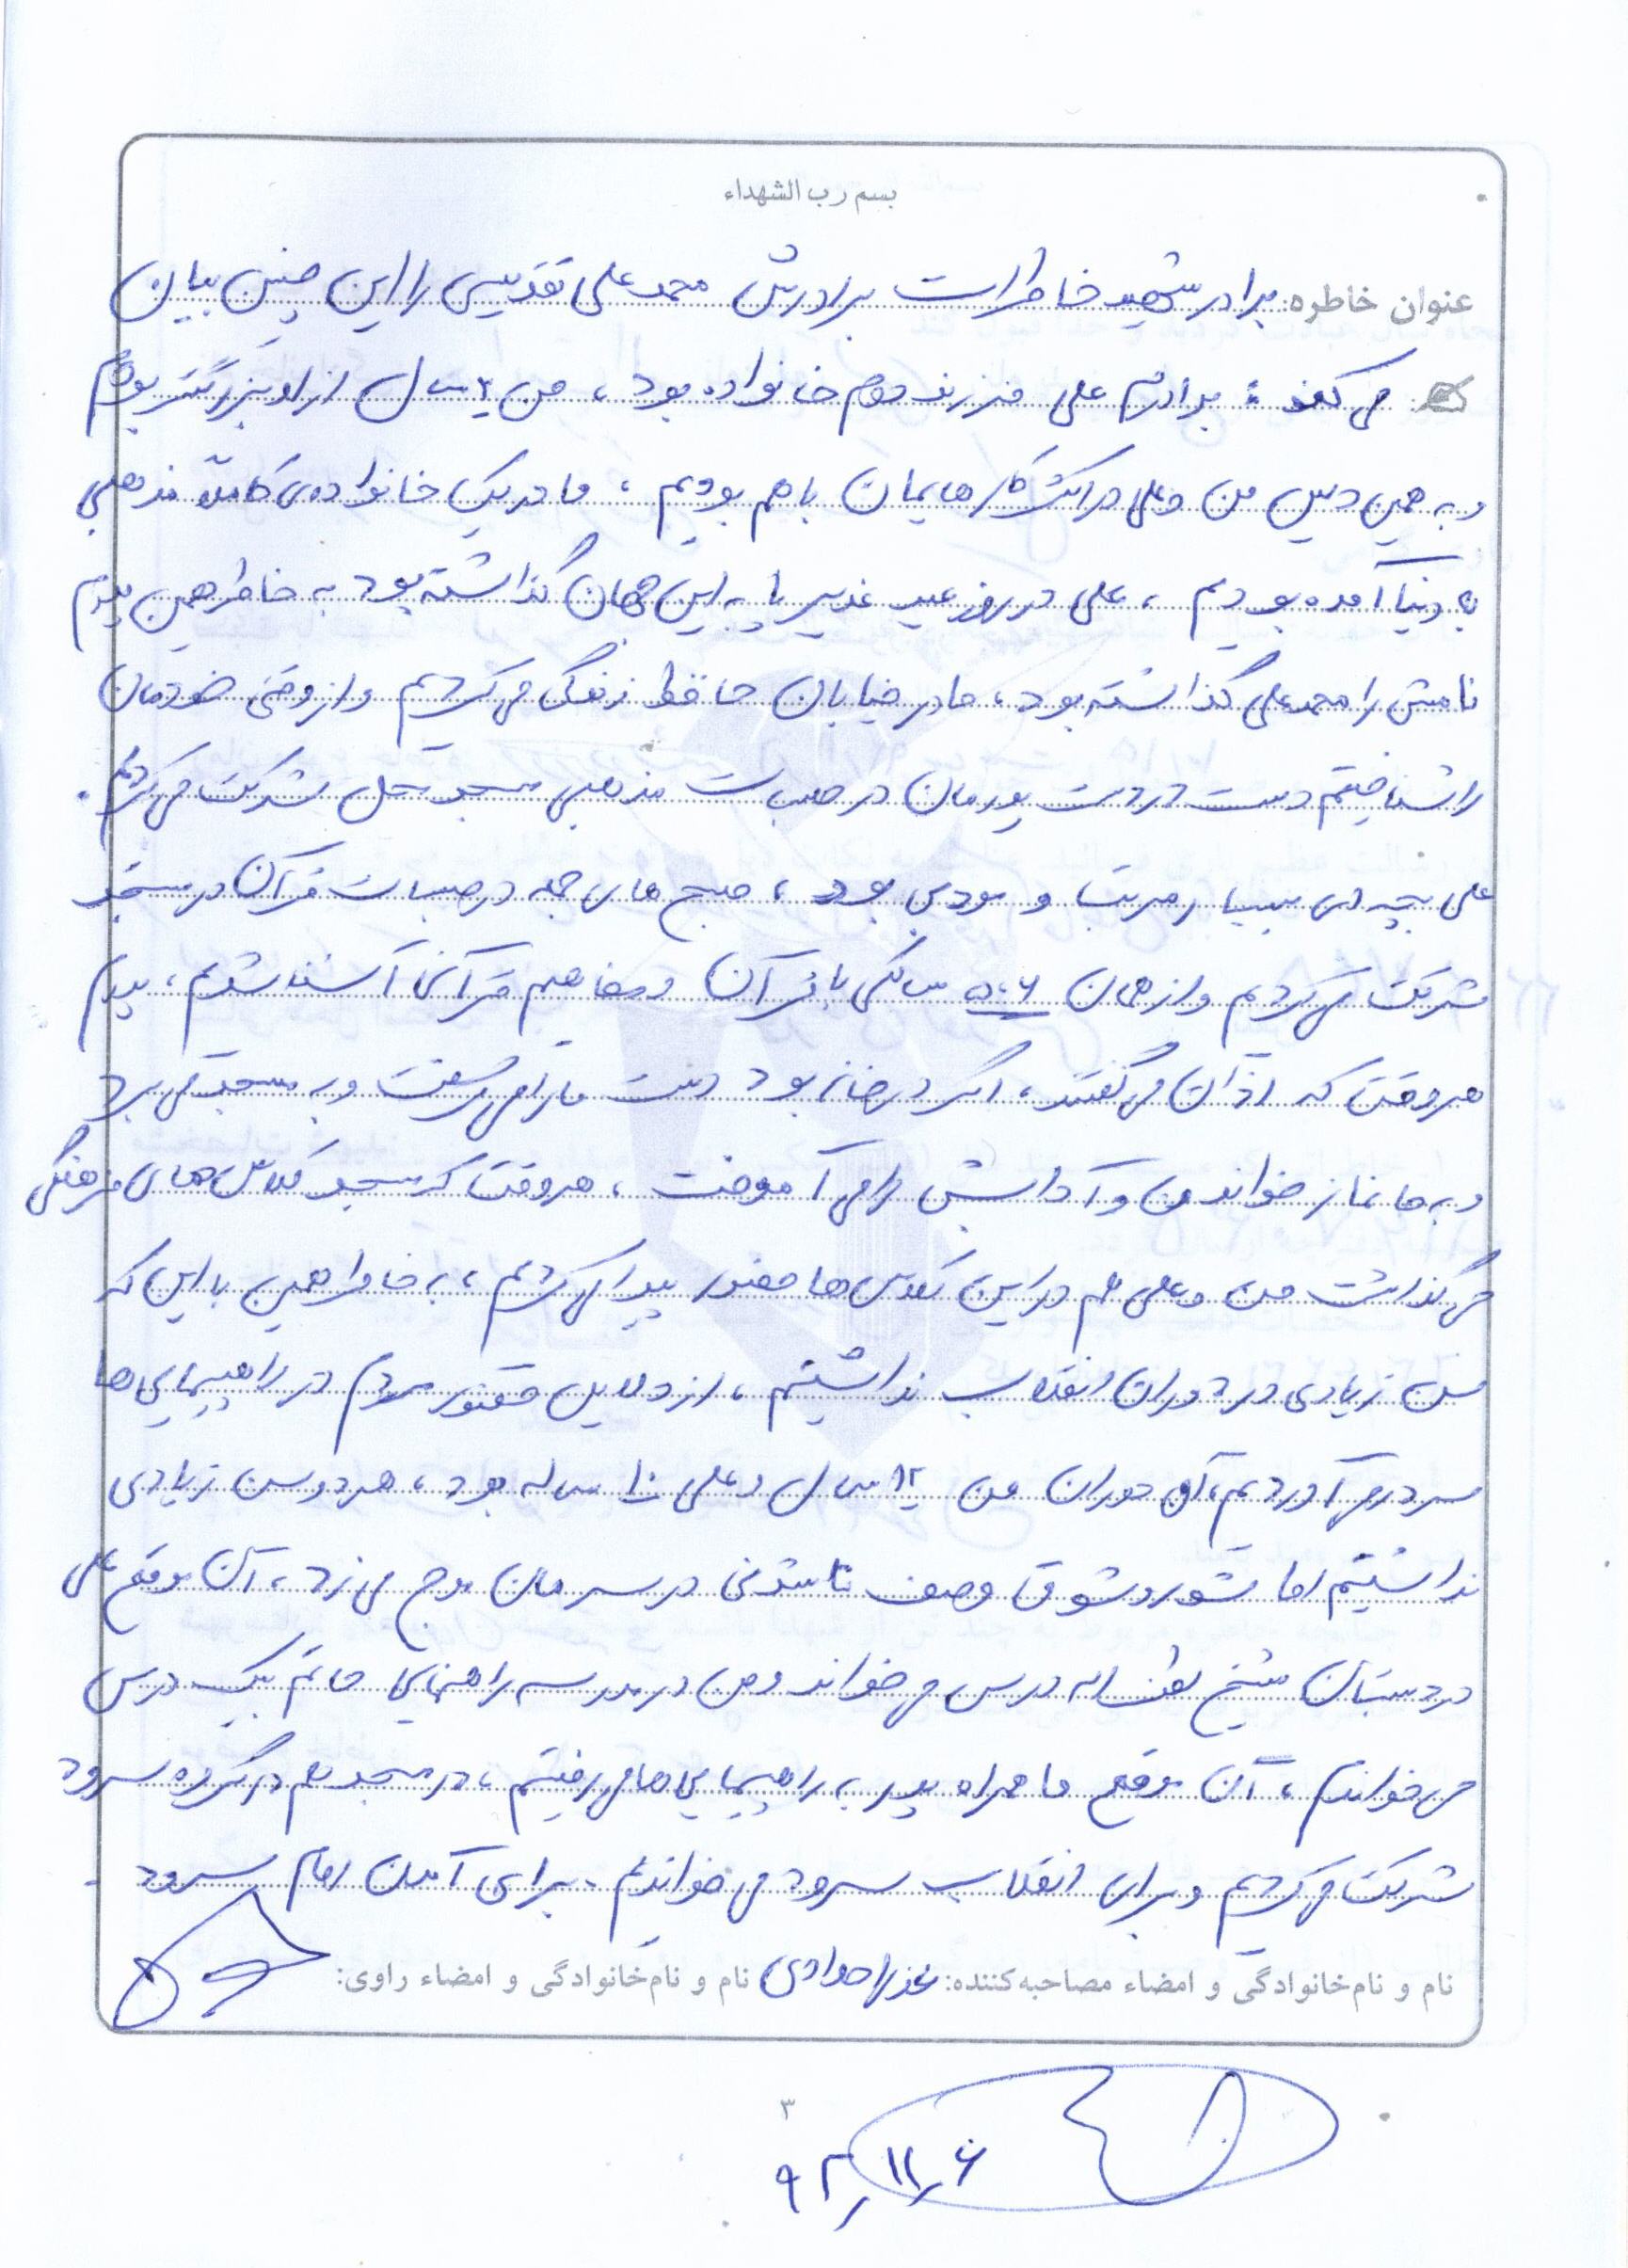 بسم رب الشهداء
عنوان خاطره: برادر شهید خاطرات برادرش محمد علی تقدیسی را این چنین بیان
می کند: برادرم علی فرزند دوم خانواده بود، من ۲ سال از او بزرگتر بودم
و به همین دلیل من و علی در اکثر کارهایمان با هم بودیم، ما در یک خانواده ی کاملاً مذهبی
به دنیا آمده بودیم، علی در روز عید غدیر پا به این جهان گذاشته بود به خاطر همین پدرم
نامش را محمد علی گذاشته بود، ما در خیابان حافظ زندگی می کردیم و از وقتی خودمان
را شناختیم دست در دست پدرمان در جلسات مذهبی مسجد محل شرکت می کردیم.
علی بچه ای بسیار مرتب و مودبی بود، صبح های جمعه در جلسات قرآن در مسجد
شرکت می کردیم و از همان ۵،۶ سالگی با قرآن و مفاهیم قرآنی آشنا شدیم، پدرم
هر وقت که اذان می گفتند، اگر در خانه بود دست ما را می گرفت و به مسجد می برد
و به ما نماز خواندن و آدابش را می آموخت، هر وقت که مسجد کلاس های فرهنگی
می گذاشت من و علی هم در این کلاس ها حضور پیدا می کردیم، به خاطر همین با این که
سن زیادی در دوران انقلاب نداشتیم، از دلایل حضور مردم در راهپیمایی ها
سر در می آوردیم، آن دوران من ۱۲ سال و علی ۱۰ ساله بود، هر دو سن زیادی
نداشتیم اما شور و شوق وصف ناشدنی در سرمان موج می زد، آن موقع علی
در دبستان شیخ لطف اله درس می خواند و من در مدرسه راهنمایی حاتم بیک درس
می خواندم، آن موقع ما همراه پدر به راهپیمایی ها می رفتیم، در مسجد هم در گروه سرود
شرکت می کردیم و برای انقلاب سرود می خواندیم. برای آمدن امام سرود
نام و نام‌خانوادگی و امضاء مصاحبه‌کننده: جوادی نام و نام‌خانوادگی و امضاء راوی:
۳
۹۲٫۱۱٫۶